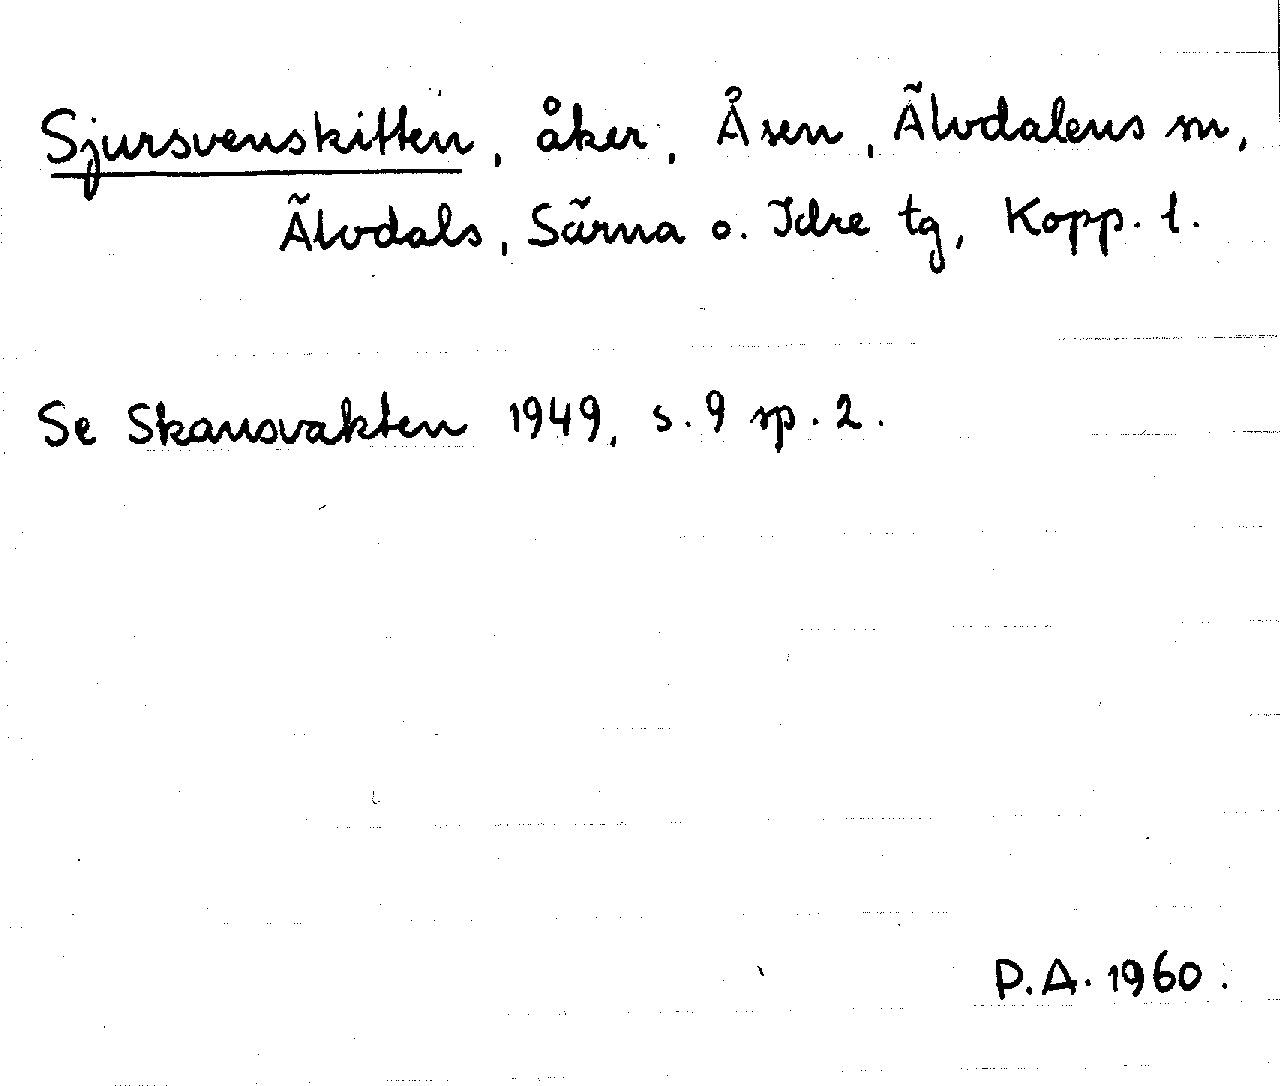 Sjursvenskitten, åker, Åsen, Älvdalens sn,
Älvdals, Särna o. Idre tg, Kopp. l.
Se Skansvakten 1949, s. 9 sp. 2.
P.A. 1960.